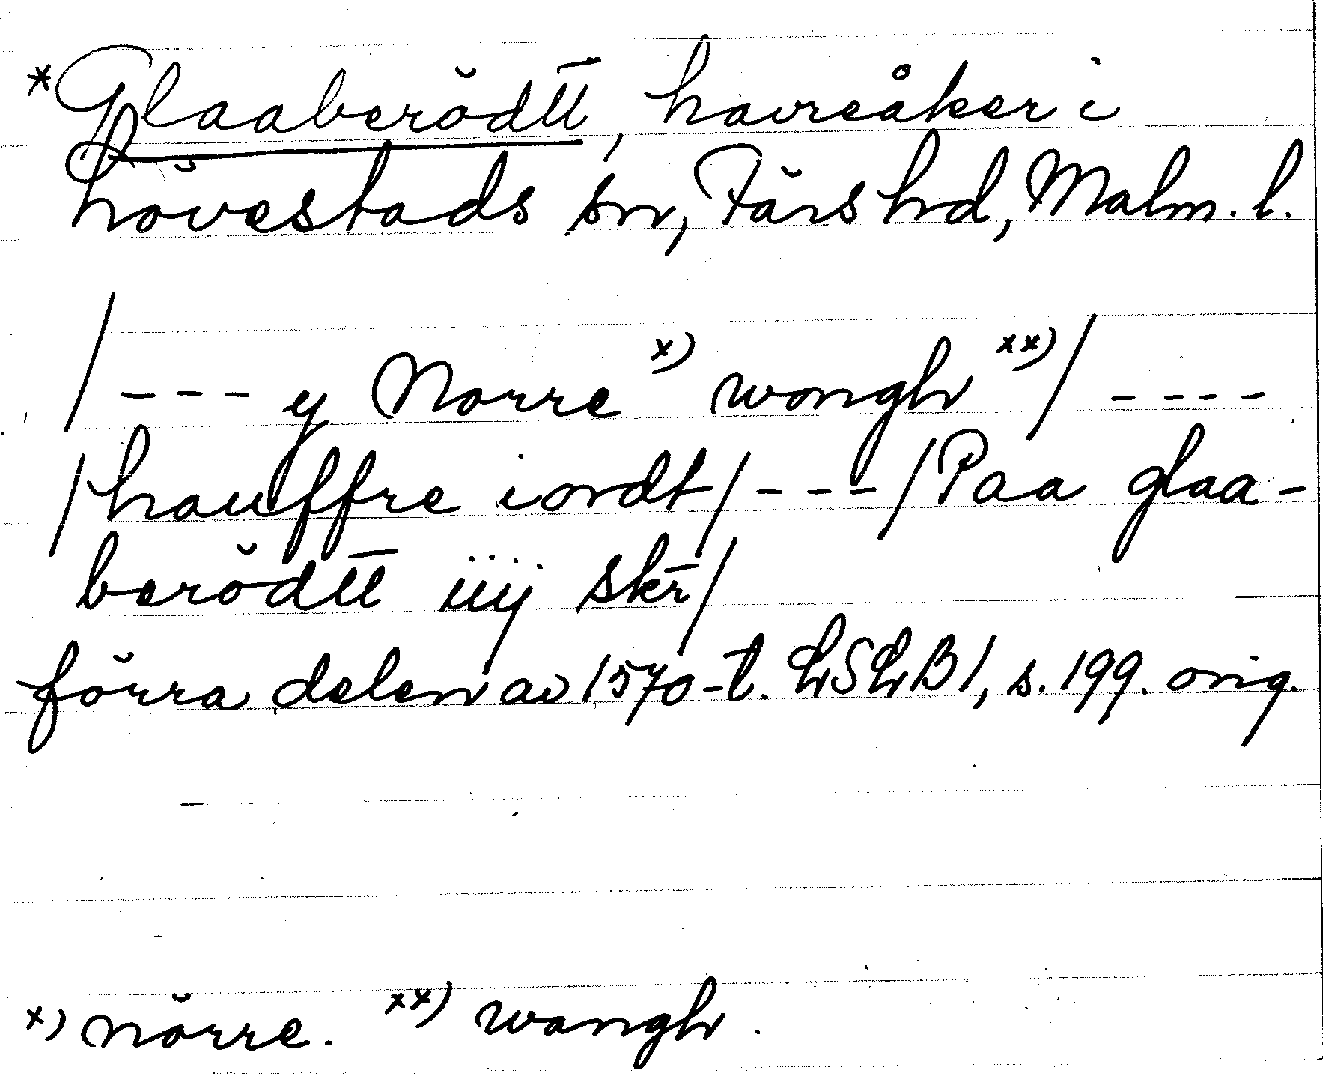 *Glaaberödtt, havreåker i
hövestads sn, Färs hd, Malm. l.
/--- y Norre x) wongh xx)/ ----
/hauffre iordt/---/Paa glaa-
berödtt iiij skr/
förra delen av 1570-t. LSLB 1, s. 199. orig.
x) nörre. xx) wangh.